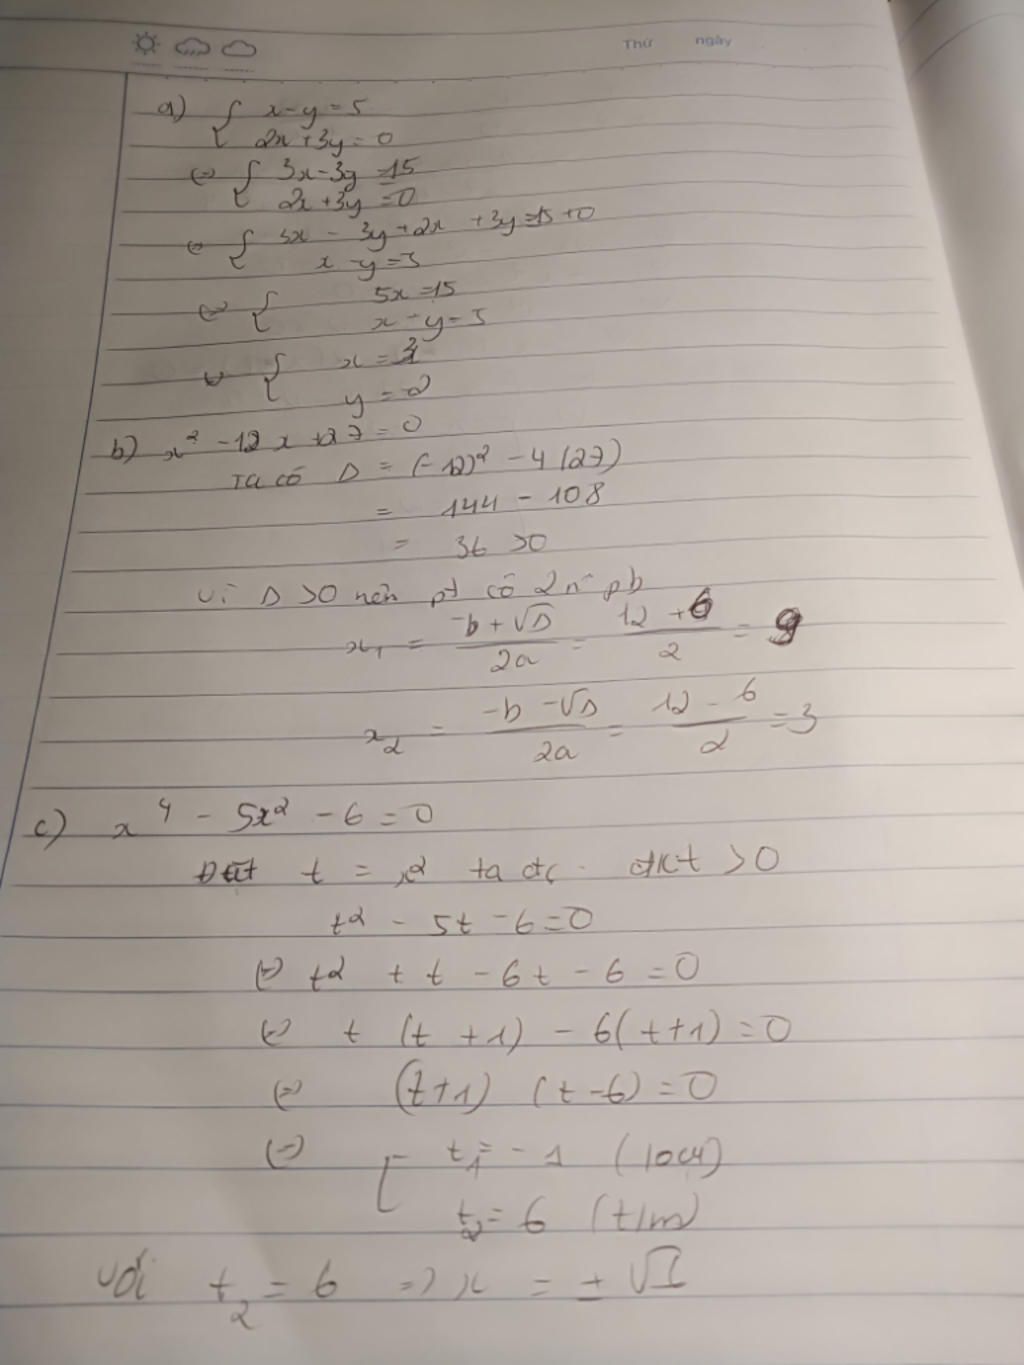 Thứ ngày
a) { x-y=5
2x+3y=0
⇔ { 3x-3y=15
2x+3y=0
⇔ { 3x - 3y+2x +3y=15+0
x-y=5
⇔ { 5x=15
x-y=5
⇔ { x=3
y=-2
b) x² -12x +27=0
Ta có Δ = (-12)² - 4(27)
= 144 - 108
= 36 >0
Vì Δ >0 nên pt có 2 n⁰ pb
x₁ = (-b+√Δ)/2a = (12+6)/2 = 9
x₂ = (-b-√Δ)/2a = (12-6)/2 = 3
c) x⁴ - 5x² - 6 = 0
Đặt t = x² ta đc. đk t >0
t² - 5t - 6 = 0
⇔ t² + t - 6t - 6 = 0
⇔ t (t+1) - 6(t+1) = 0
⇔ (t+1) (t-6) = 0
⇔ [ t₁ = -1 (loại)
t₂ = 6 (t/m)
với t₂ = 6 => x = ±